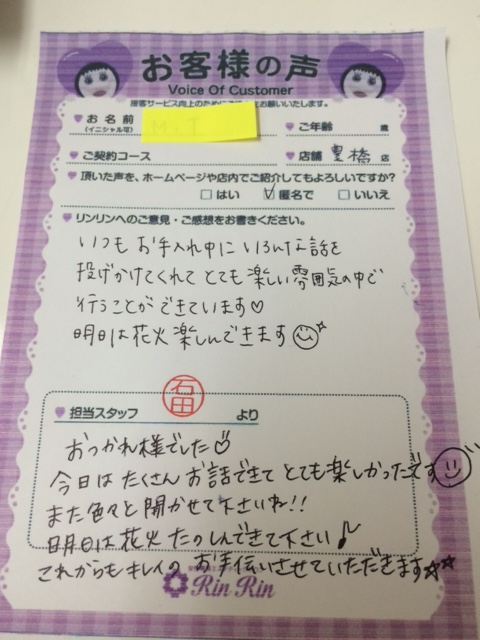 お客様の声
Voice Of Customer
接客サービス向上のために
お願いいたします。
お名前
(イニシャル可)
ご年齢 歳
ご契約コース
店舗 豊橋 店
頂いた声を、ホームページや店内でご紹介してもよろしいですか?
はい 匿名で いいえ
リンリンへのご意見・ご感想をお書きください。
いつもお手入れ中にいろんな話を
投げかけてくれてとても楽しい雰囲気の中で
行うことができています♡
明日は花火楽しんできます
石田
担当スタッフ より
おつかれ様でした♡
今日はたくさんお話できてとても楽しかったです
また色々と聞かせて下さいね!!
明日は花火たのしんできて下さい♪
これからもキレイのお手伝いさせていただきます☆☆
Rin Rin